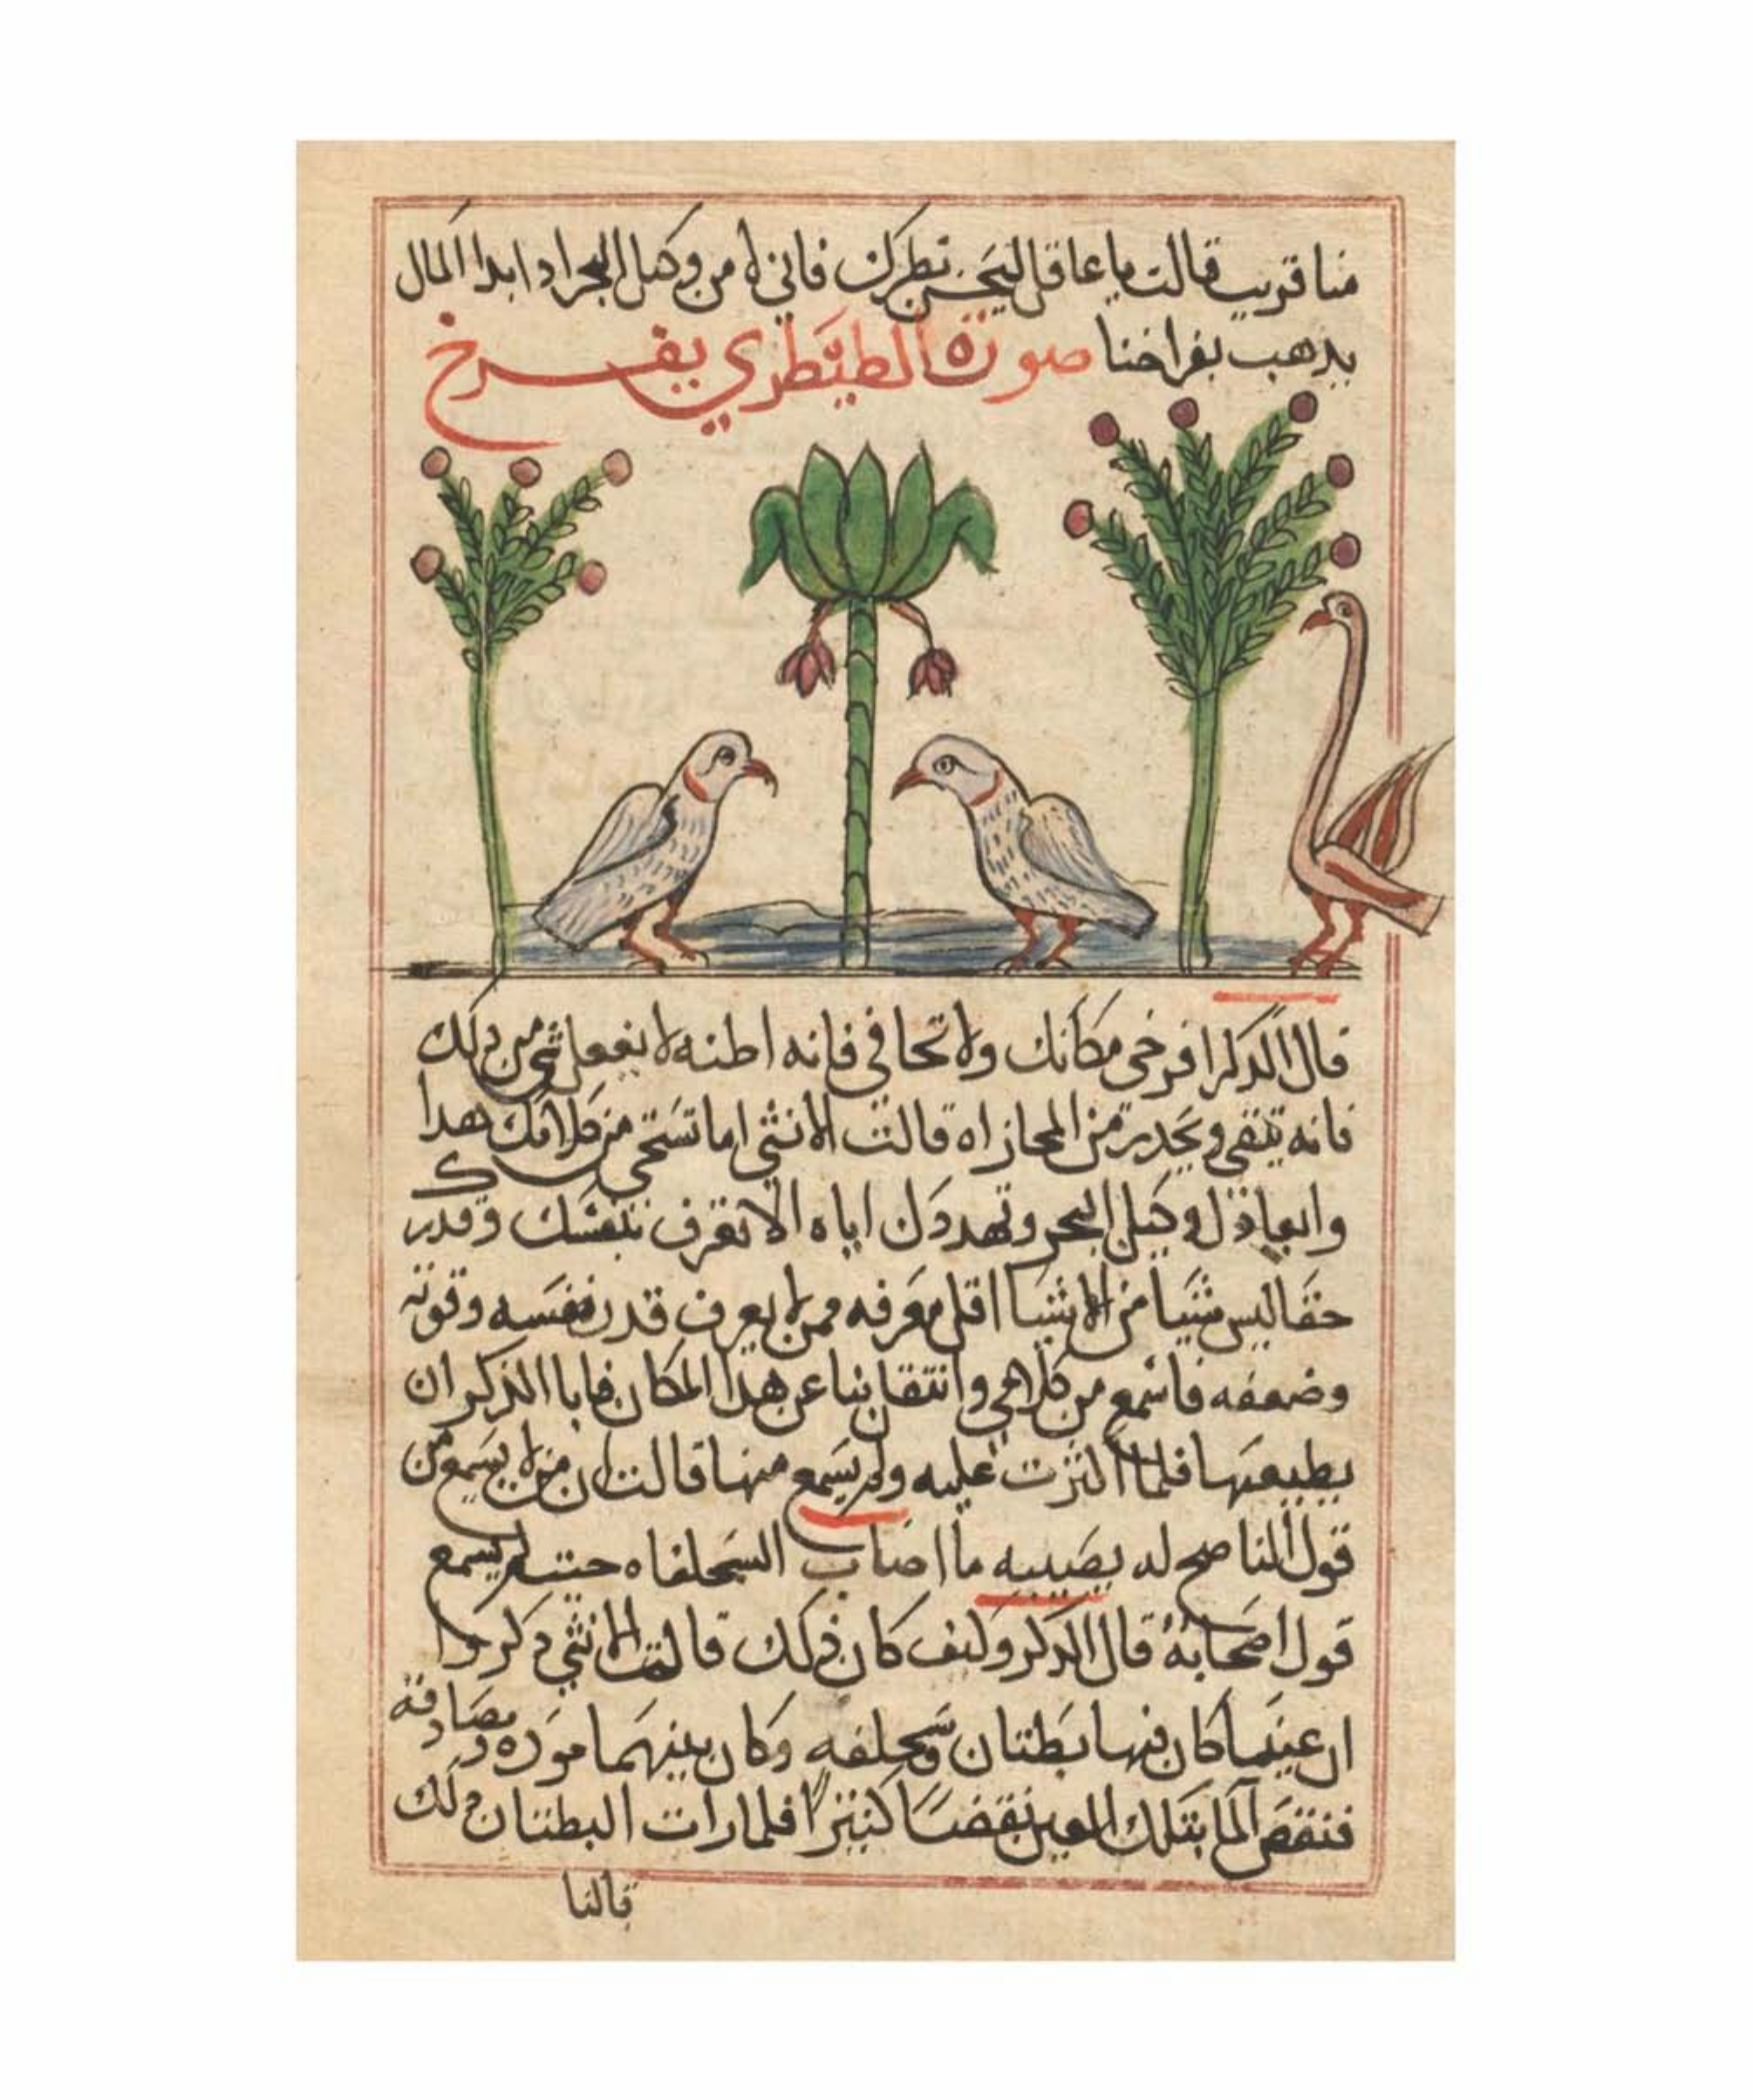 منا قريب قالت يا عاقل ليحسن نظرك فاني لا من وكيل البحر اذا بدا المال
يذهب بفراخنا صورة الطيطري يفرخ
قال الذكر افرخي مكانك ولا تخافي فانه اظنه لا يفعل شي من ذلك
فانه يتقي ويحذر من المجازاه قالت الانثي اما تستحي من كلامك هدا
وايعادك وكيل البحر وتهددك اياه الا تعرف نفسك وقدر
حقا ليس شيا من الاشيا اقل معرفه ممن لا يعرف قدر نفسه وقوته
وضعفه فاسمع من كلامي وانتقل بنا عن هذا المكان فابا الذكر ان
يطيعها فلما اكثرت عليه ولم يسمع منها قالت ان من لا يسمع من
قول الناصح له يصيبه ما اصاب السحلفاه حيت لم يسمع
قول اصحابه قال الدكر وكيف كان ذلك قالت الانثي دكروا
ان عينا كان فيها بطتان وسحلفه وكان بينهما موده ومصادقه
فنقص الما بتلك العين نقصا كثيرا فلما رات البطتان دلك
قالتا